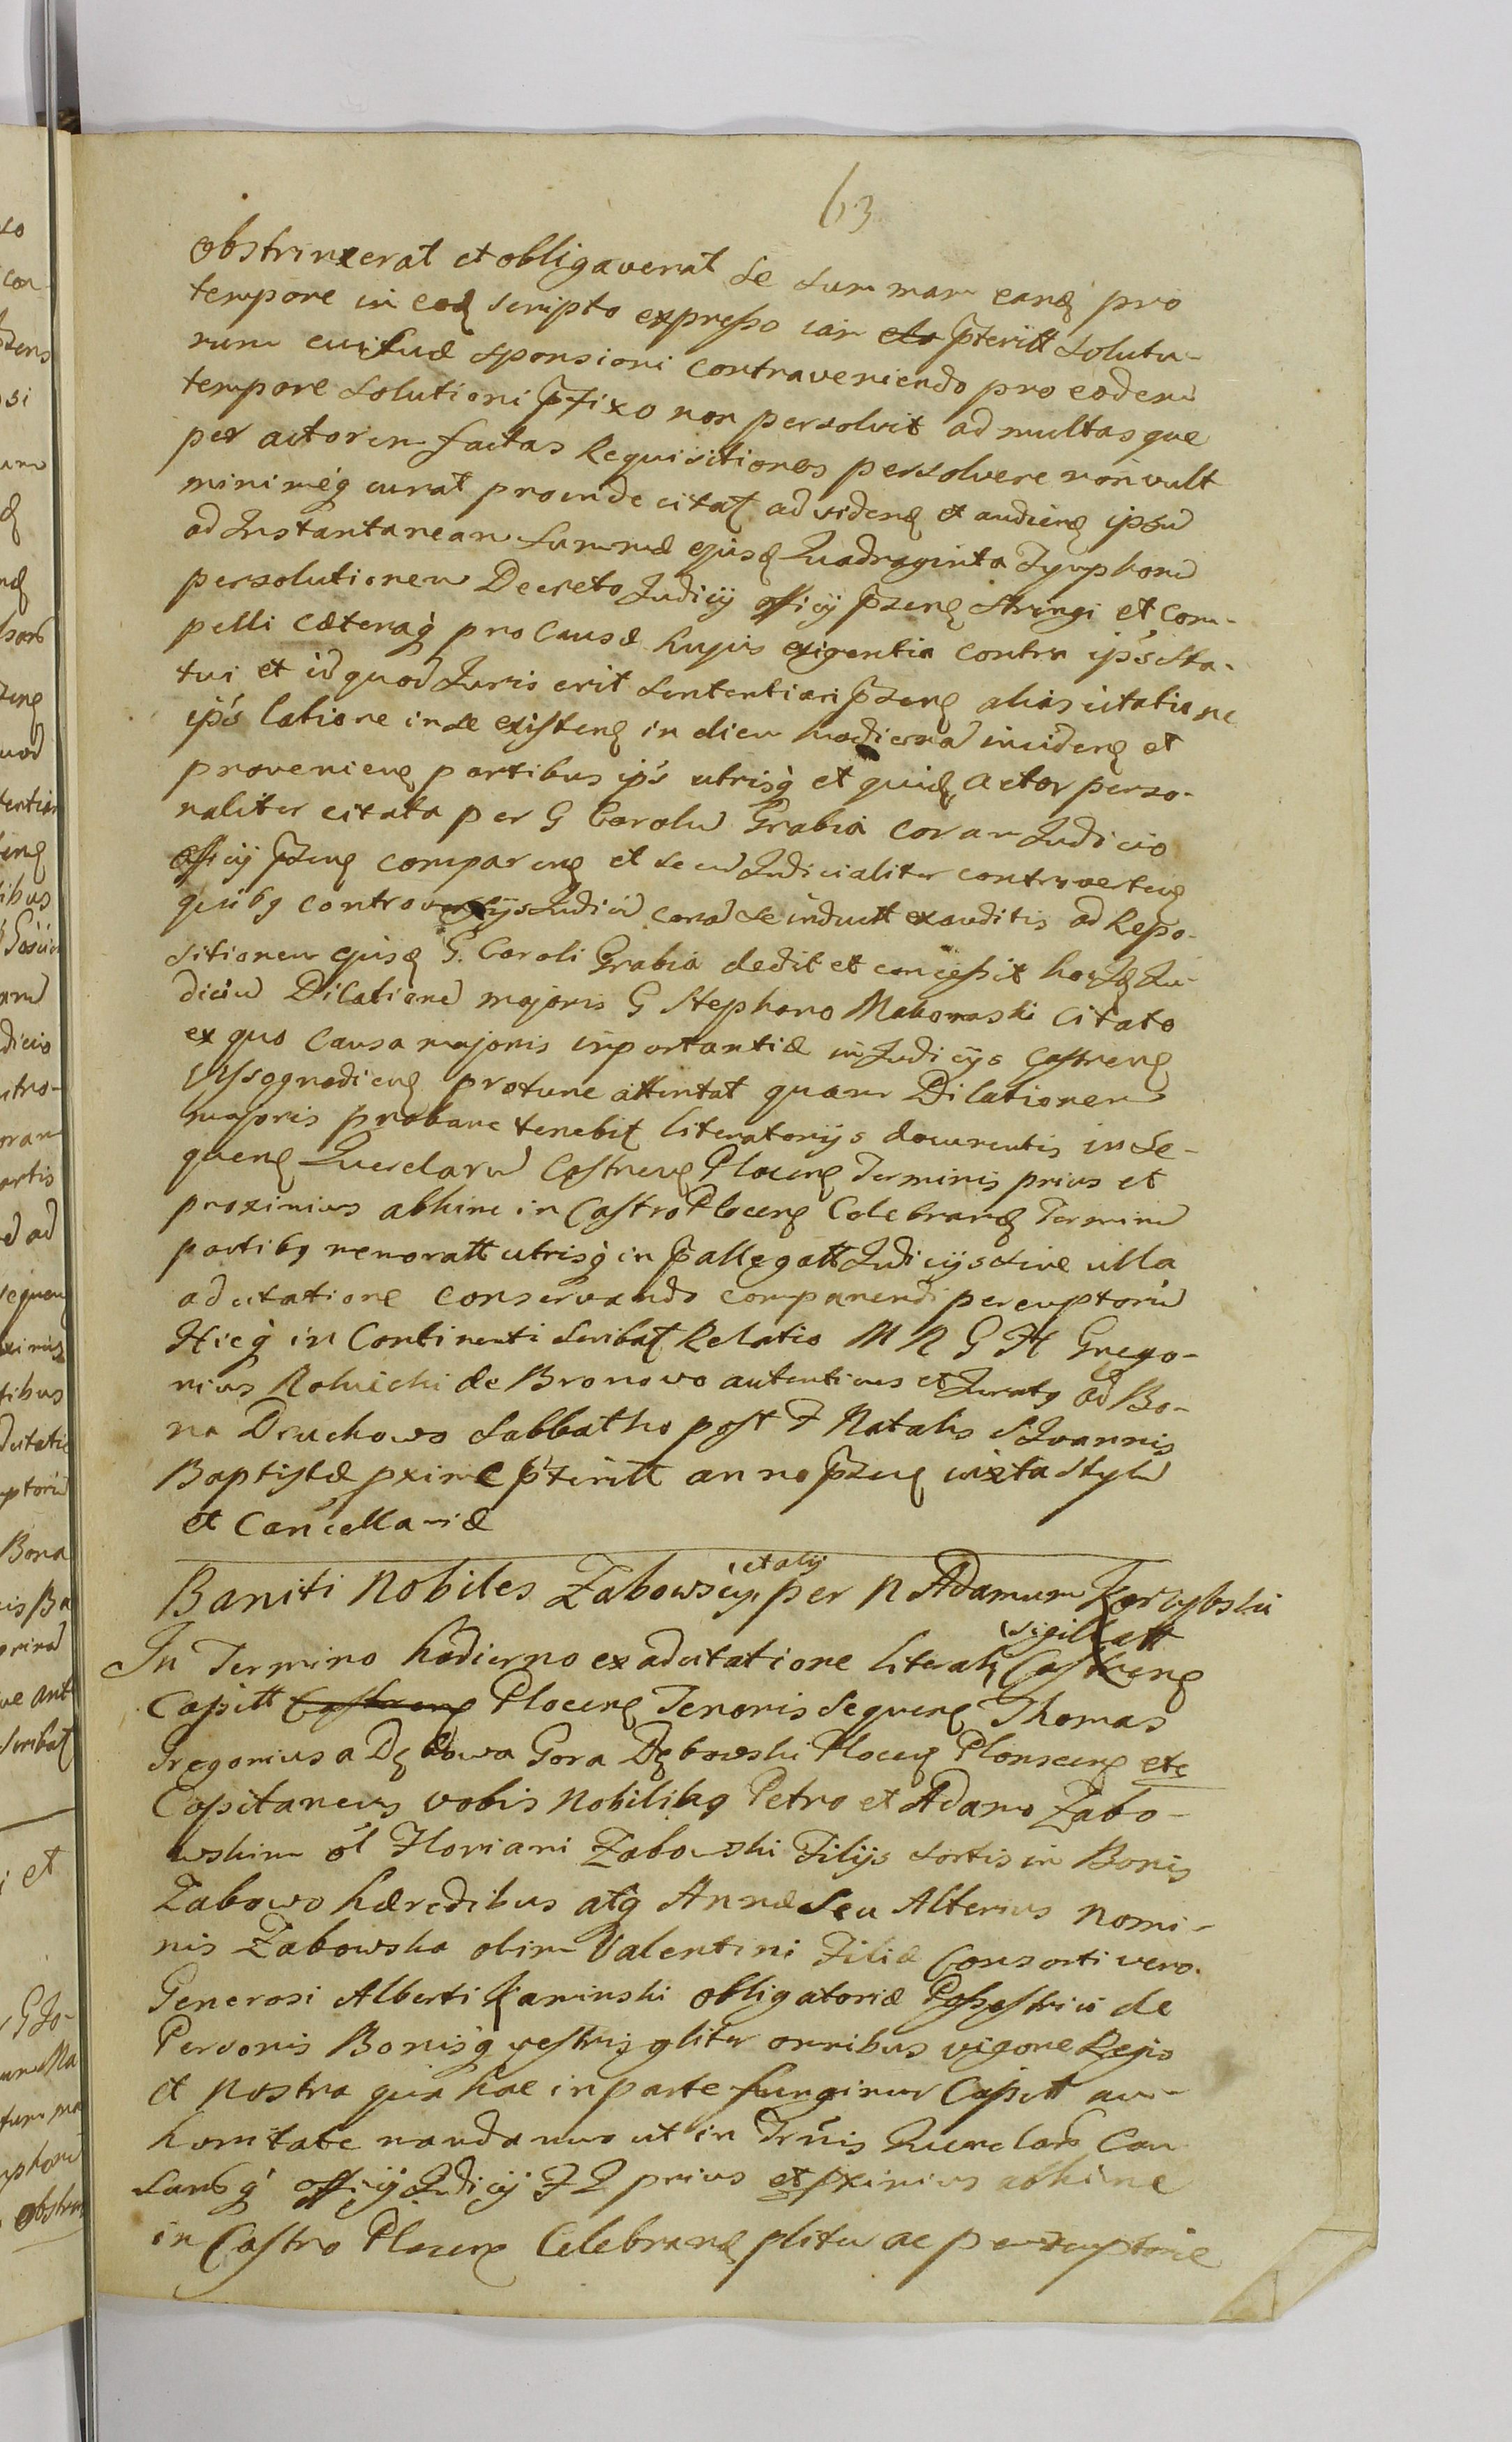 63
obstrinxerat et obligaverat se summam eand pro
tempore in eod scripto expresso iam pteritt solutu-
rum cui suæ sponsioni contraveniendo pro eodem
tempore solutioni pfixo non persolvit ad multasque
per actorem factas Requisitiones persolvere non vult
minimeq curat proinde citat ad videnđ et audienđ ipsũ
ad Instantaneam summæ ejusđ Quadraginta Tymphorũ
persolutionem Decreto Judicij officij pzenđ stringi et com-
pelli cæteraq pro causæ hujus exigentia contra ips sta-
tui et id quod Juris erit sententiari pzenđ alias citatione
ips latione in se existenđ in diem hodiernã incidenđ et
provenienđ partibus ips utrisq et quidđ actor perso-
naliter citata per G Carolũ Grabia coram Judicio
officij pzenđ comparenđ et secũ Judicialiter controvertenđ
quibg controversijs Judiciũ corã se induett exauditis ad Repo-
sitionem ejusđ G. Caroli Grabia dedit et concessit hocđ Ju-
diciũ Dilationẽ majoris G Stephano Makomaski citato
ex quo causa majoris importantiæ in Judicijs castrenđ
Wyssogrodienđ protunc attentat quam Dilationem
majoris probare tenebit literatorijs documentis in se-
quenđ Querelarũ Castrenđ Plocenđ Terminis prius et
proximius abhinc in Castro Plocenđ Celebranđ Terminũ
partibg memoratt utrisq in pallegatt Judicijs sine ulla
adcitatione conservando comparendi peremptoriũ
Hicq in Continenti scribat Relatio M R G H Grego-
rius Rolnicki de Bronowo autenticus et Juratg ad Bo-
na Druchowo Sabbatho post F Natalis S Joannis
Baptistæ pxime pteritt anno pzenđ iuxta stylũ
et Cancellariæ
Baniti Nobiles Zabowscy et alij per N Adamum Zorzybski
In Termino hodierno ex adcitatione literali sigillatt Castrenđ
Capitt Castrenđ Plocenđ Tenoris sequenđ Thomas
Gregorius a Dębowa Gora Dębowski Plocenđ Plonscenđ etc
Capitaneus vobis Nobilibg Petro et Adamo Zabo-
wskim ol Floriani Zabowski Filijs sortis in Bonis
Zabowo hæredibus atq Annæ seu Alterius nomi-
nis Zabowska olim Valentini Filiæ Consorti vero
Generosi Alberti Kaminski obligatoriæ Possestrici de
Personis Bonisq vestris gliter omnibus vigore Regio
et nostra qua hac in parte fungimur Capitt au-
thoritate mandamus ut in Trũis Querelarũ Cau
sarũq officij Judicij F Q prius et pximius abhinc
in Castro Plocenđ Celebranđ pliter ac peremptorie